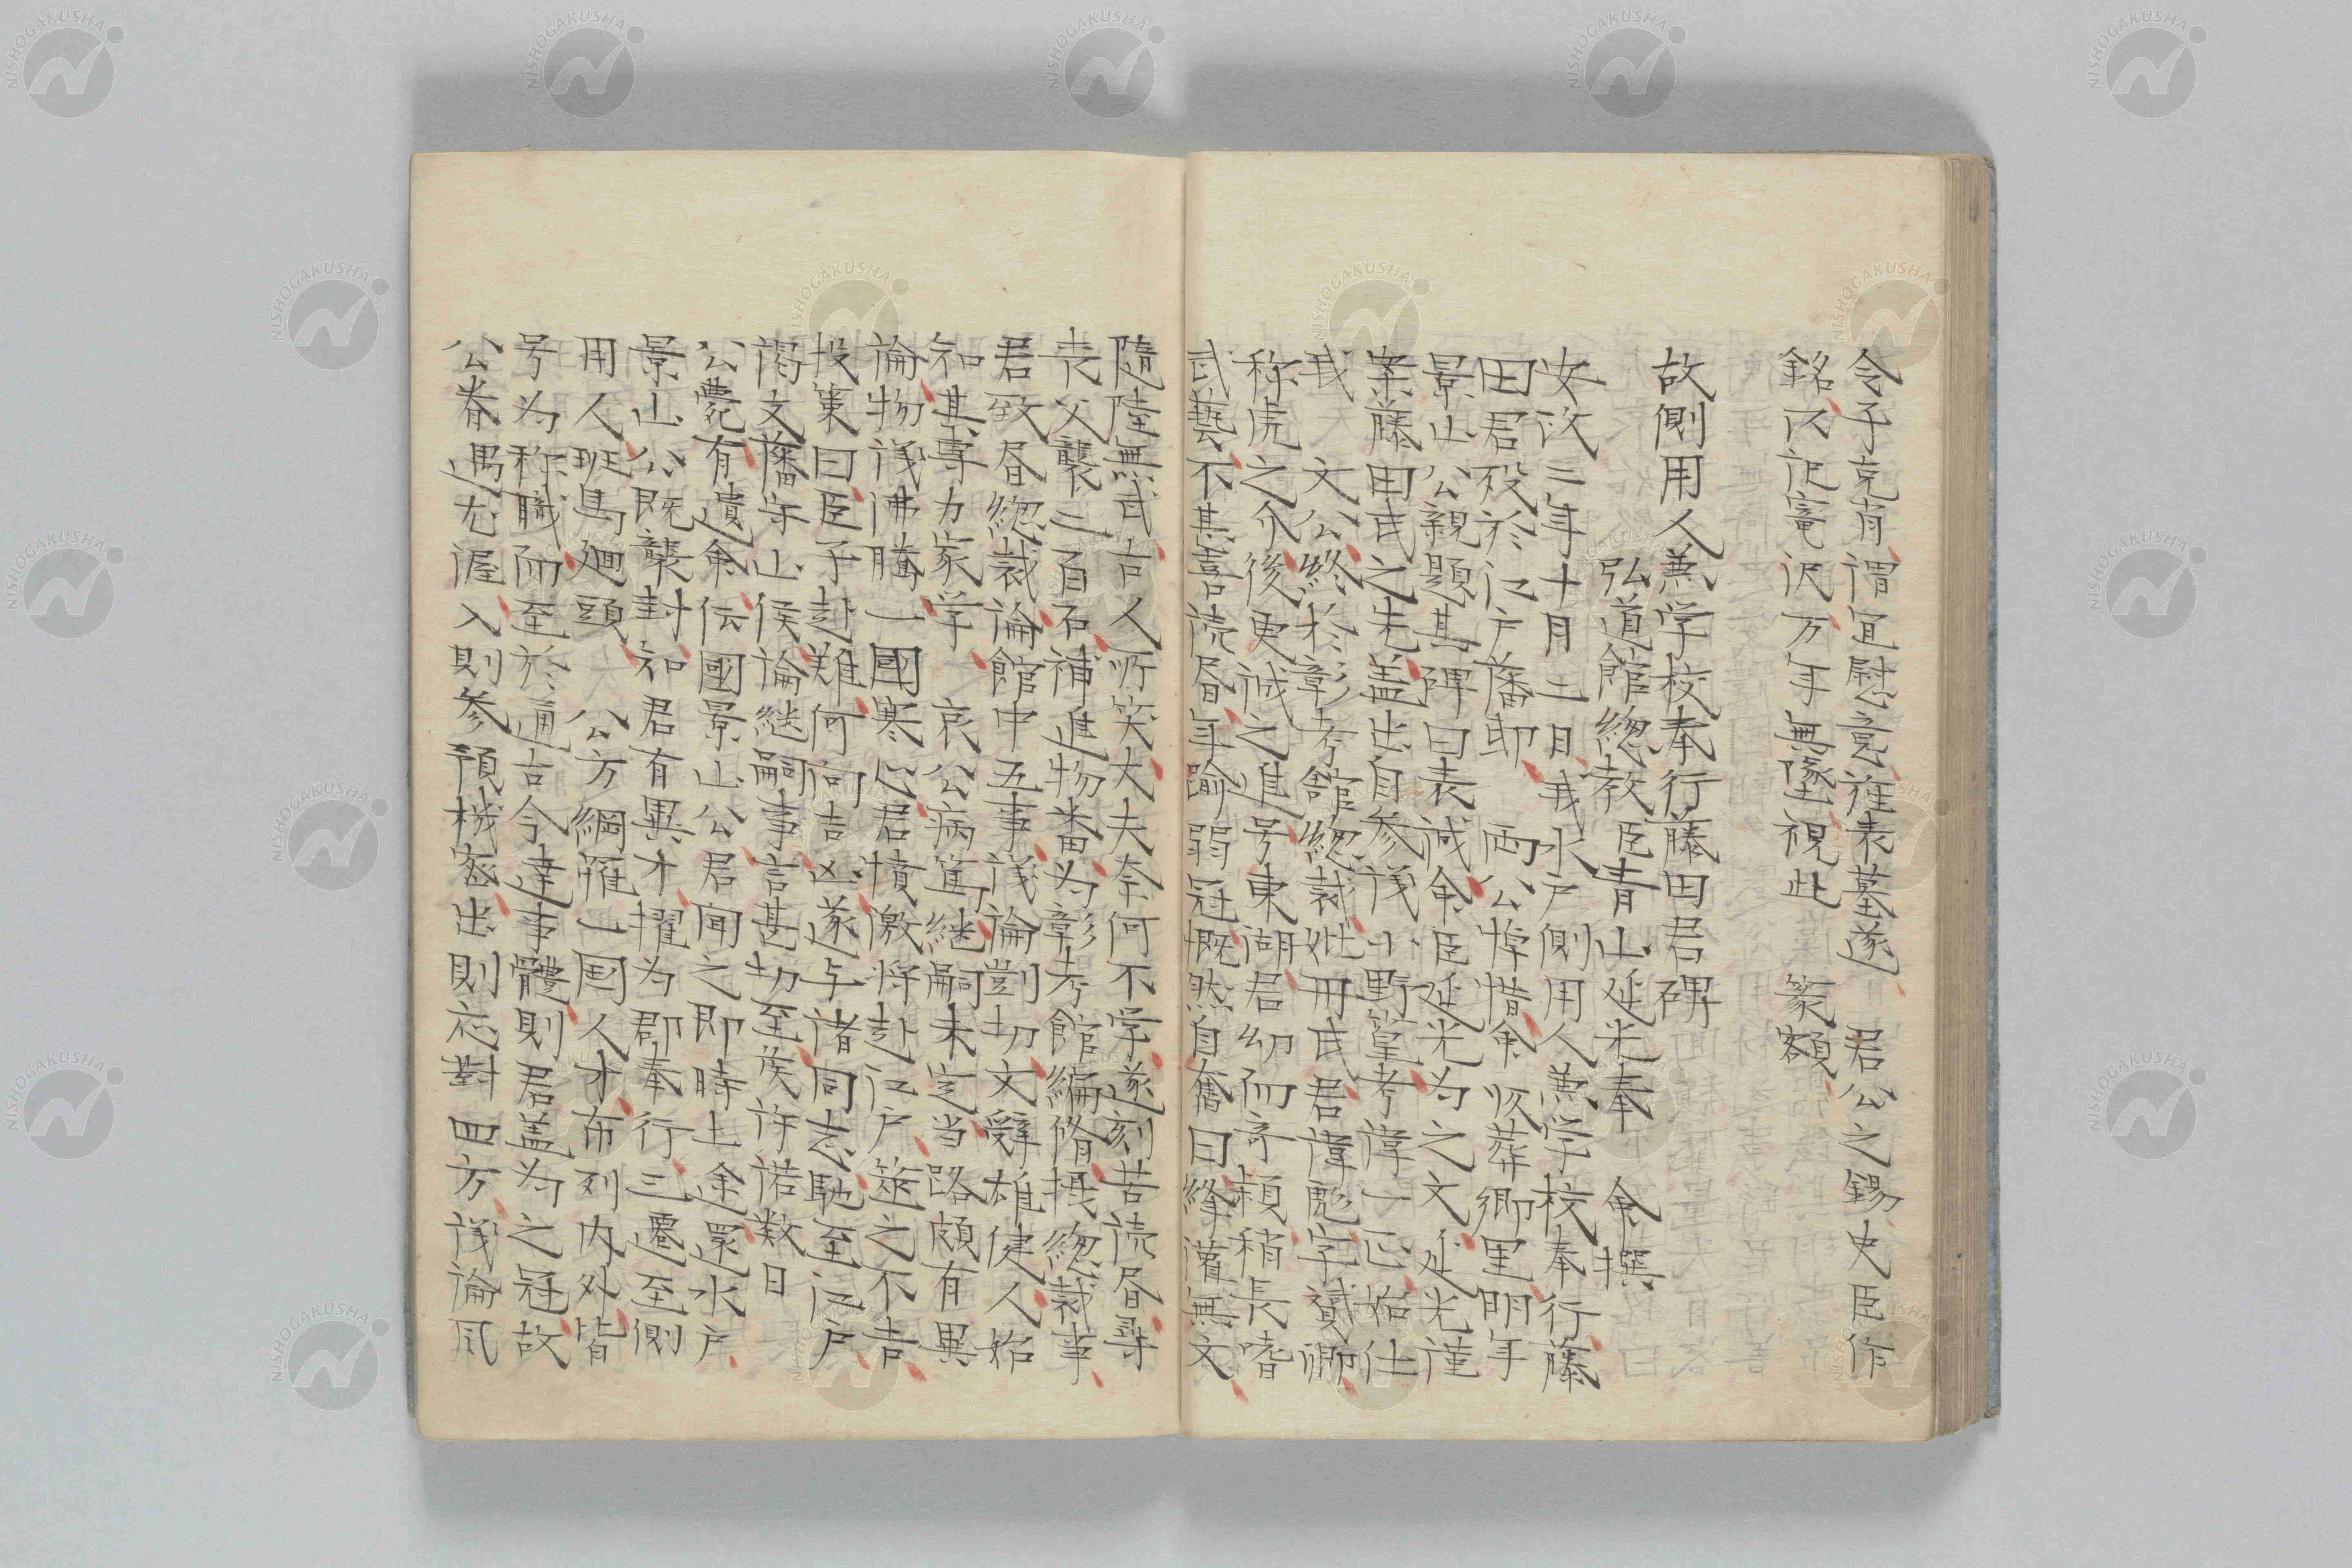 令子克肖、謂宜慰意、旌表墓、遂　君公之錫、史臣作
銘、以記窀、沢万年無墜、視此　篆額、
故側用人兼学校奉行藤田君碑
弘道館総教臣青山延光奉　命撰
安政二年十月二日、我水戸側用人兼学校奉行藤
田君歿於江戸藩邸、　両公悼惜、命　帰葬郷里、明年
景山公親題其碑曰表誠、命臣延光為之文、延光謹
案藤田氏之先、盖出自参議小野篁、考諱一正、始仕
我　文公、終於彰考館総裁、妣丹氏、君諱彪、字贇卿、
称虎之介、後更誠之進、号東湖、君幼而奇穎、稍長嗜
武藝、不甚喜読書、年踰弱冠、慨然自奮曰、絳灌無文、
随陸無武、古人所笑、大夫奈何不学、遂刻苦読書、尋
喪父、襲二百石、補進物番、為彰考館編脩、摂総裁事、
君致書総裁、論館中五事、議論剴切、文辞雄健、人始
知其専力家学、　哀公病篤、継嗣未定、当路頗有異
論、物議沸騰、一國寒心、君憤激、将赴江戸、筮之不吉、
投策曰、臣子赴難、何問吉凶、遂与諸同志馳至江戸、
謁文藩守山侯、論継嗣事、言甚切至、侯許諾、数日
公薨、有遺命、伝國景山公、君聞之、即時上途還水戸、
景山公既襲封、知君有異才、擢為郡奉行、三遷至側
用人、班馬廻頭、　公方綱羅一国人才、布列内外、皆
号為称職、而至於通古今、達事體、則君盖為之冠、故
公眷遇尤渥、入則参預機密、出則応對四方、議論風